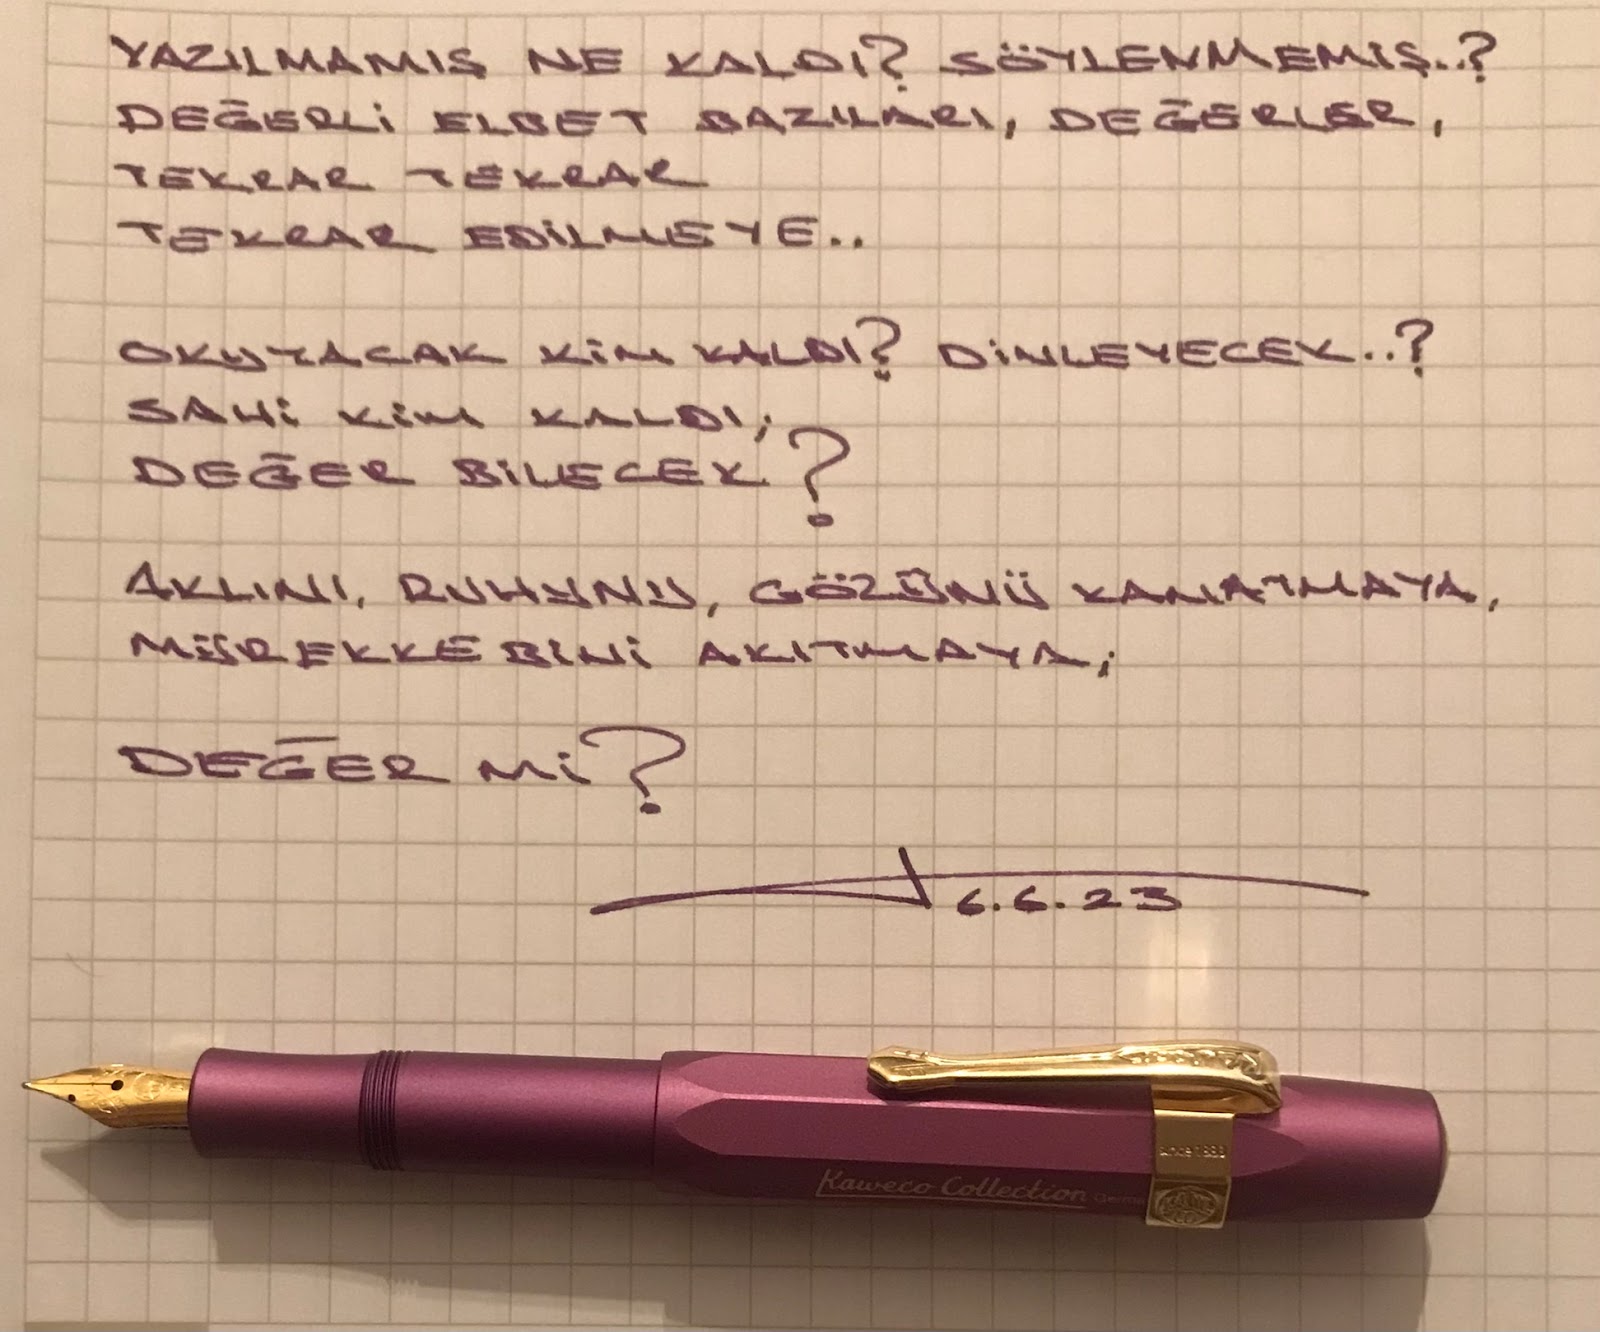 YAZILMAMIŞ NE KALDI? SÖYLENMEMİŞ..?
DEĞERLİ ELBET BAZILARI, DEĞERLER,
TEKRAR TEKRAR
TEKRAR EDİLMEYE..
OKUYACAK KİM KALDI? DİNLEYECEK..?
SAHİ KİM KALDI;
DEĞER BİLECEK?
AKLINI, RUHUNU, GÖZÜNÜ KANATMAYA,
MÜREKKEBİNİ AKITMAYA;
DEĞER Mİ?
6.6.23
since 1883
Kaweco Collection